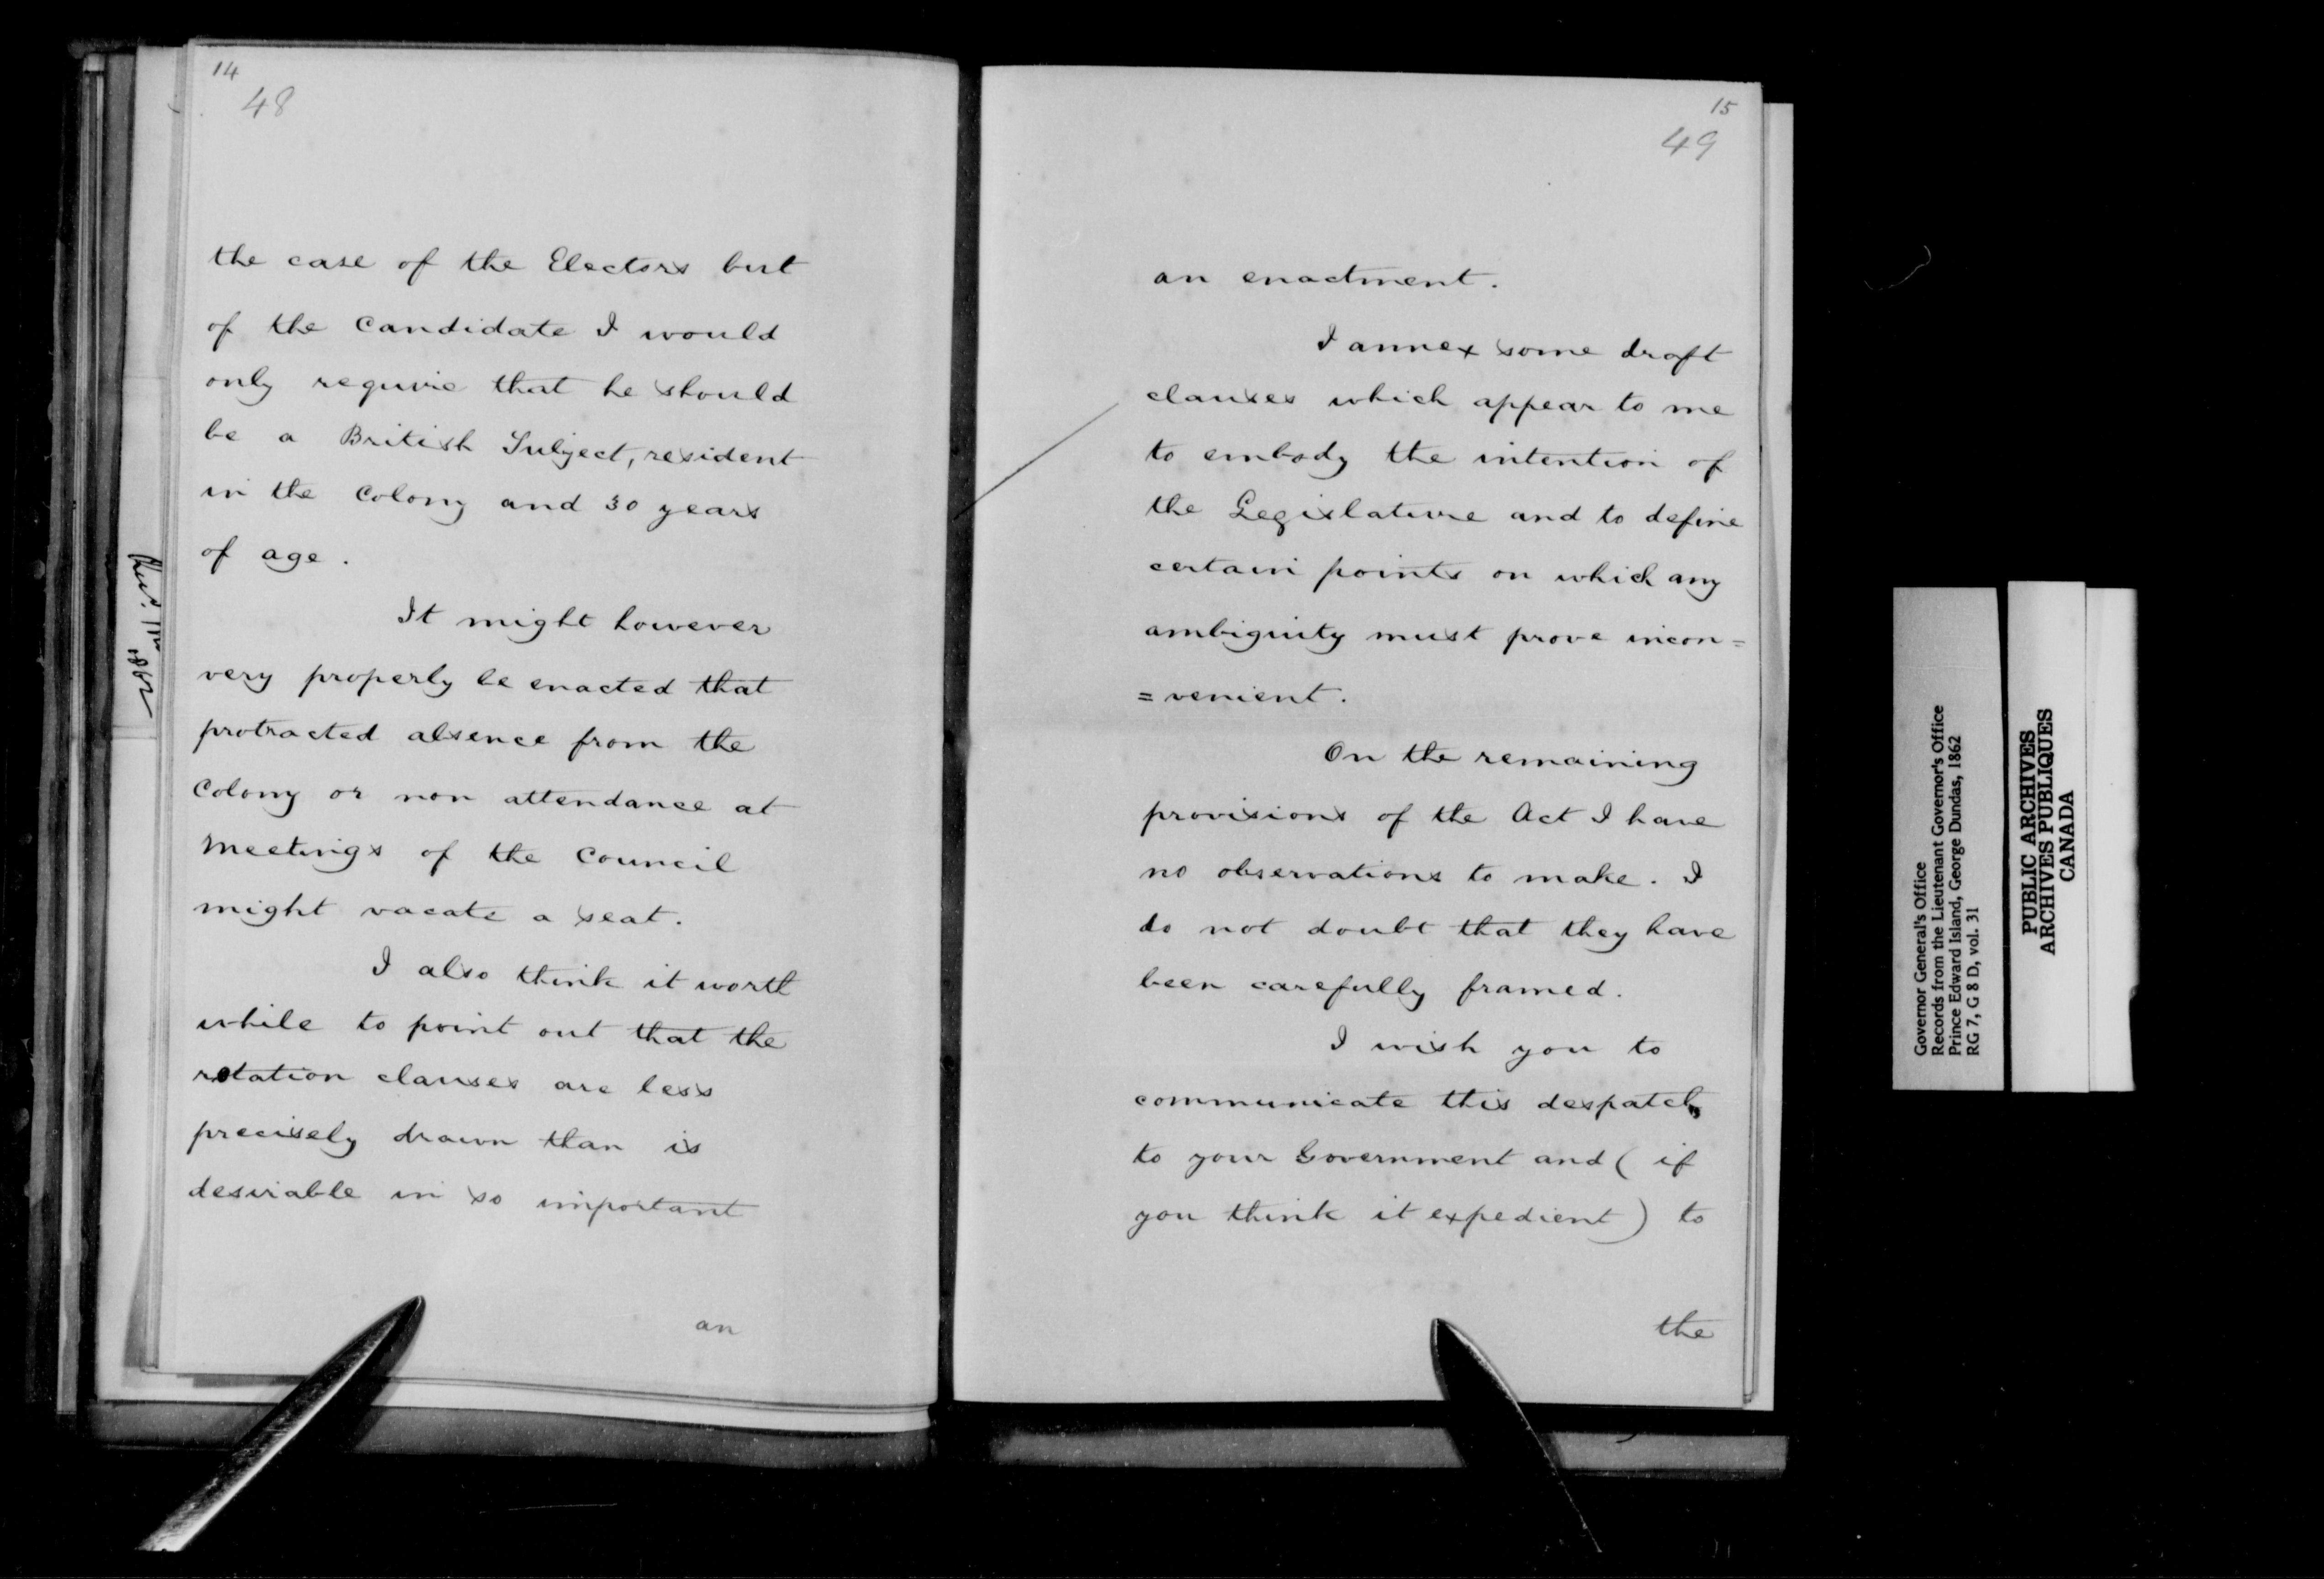 14
48
the case of the Electors but
of the Candidate I would
only require that he should
be a British Subject, resident
in the Colony and 30 years
of age.
It might however
very properly be enacted that
protracted absence from the
Colony or non attendance at
Meetings of the Council
might vacate a seat.
I also think it worth
while to point out that the
rotation clauses are less
precisely drawn than is
desirable in so important
an
1862
15
49
an enactment.
I annex some draft
clauses which appear to me
to embody the intention of
the Legislature and to define
certain points on which any
ambiguity must prove incon=
=venient.
On the remaining
provisions of the Act I have
no observations to make. I
do not doubt that they have
been carefully framed.
I wish you to
communicate this despatch
to your Government and (if
you think it expedient) to
the
Governor General's Office
Records from the Lieutenant Governor's Office
Prince Edward Island, George Dundas, 1862
RG 7, G 8 D, vol. 31
PUBLIC ARCHIVES
ARCHIVES PUBLIQUES
CANADA